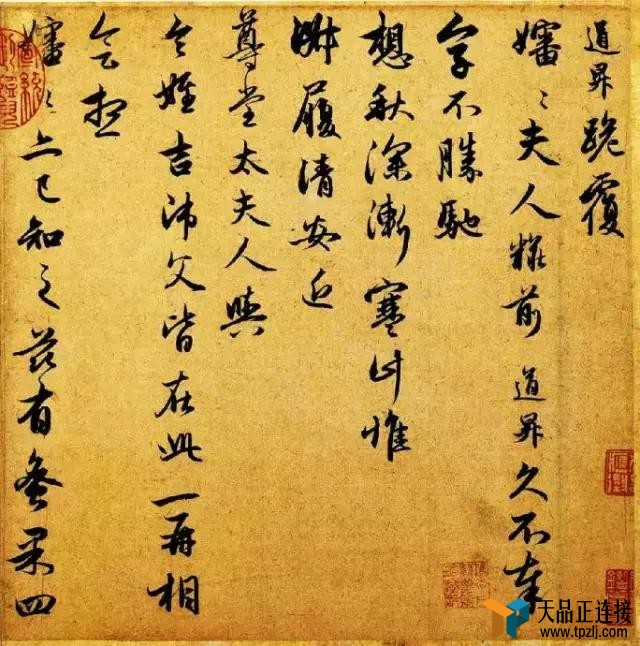 道昇跪覆
嬸〻夫人粧前道昇久不奉
字不勝馳
想秋深漸寒計惟
淑履清安近
尊堂太夫人與
令姪吉師父皆在此一再相
會想
嬸〻亦已知之茲有蜜果四
天品正连接
www.tpzlj.com